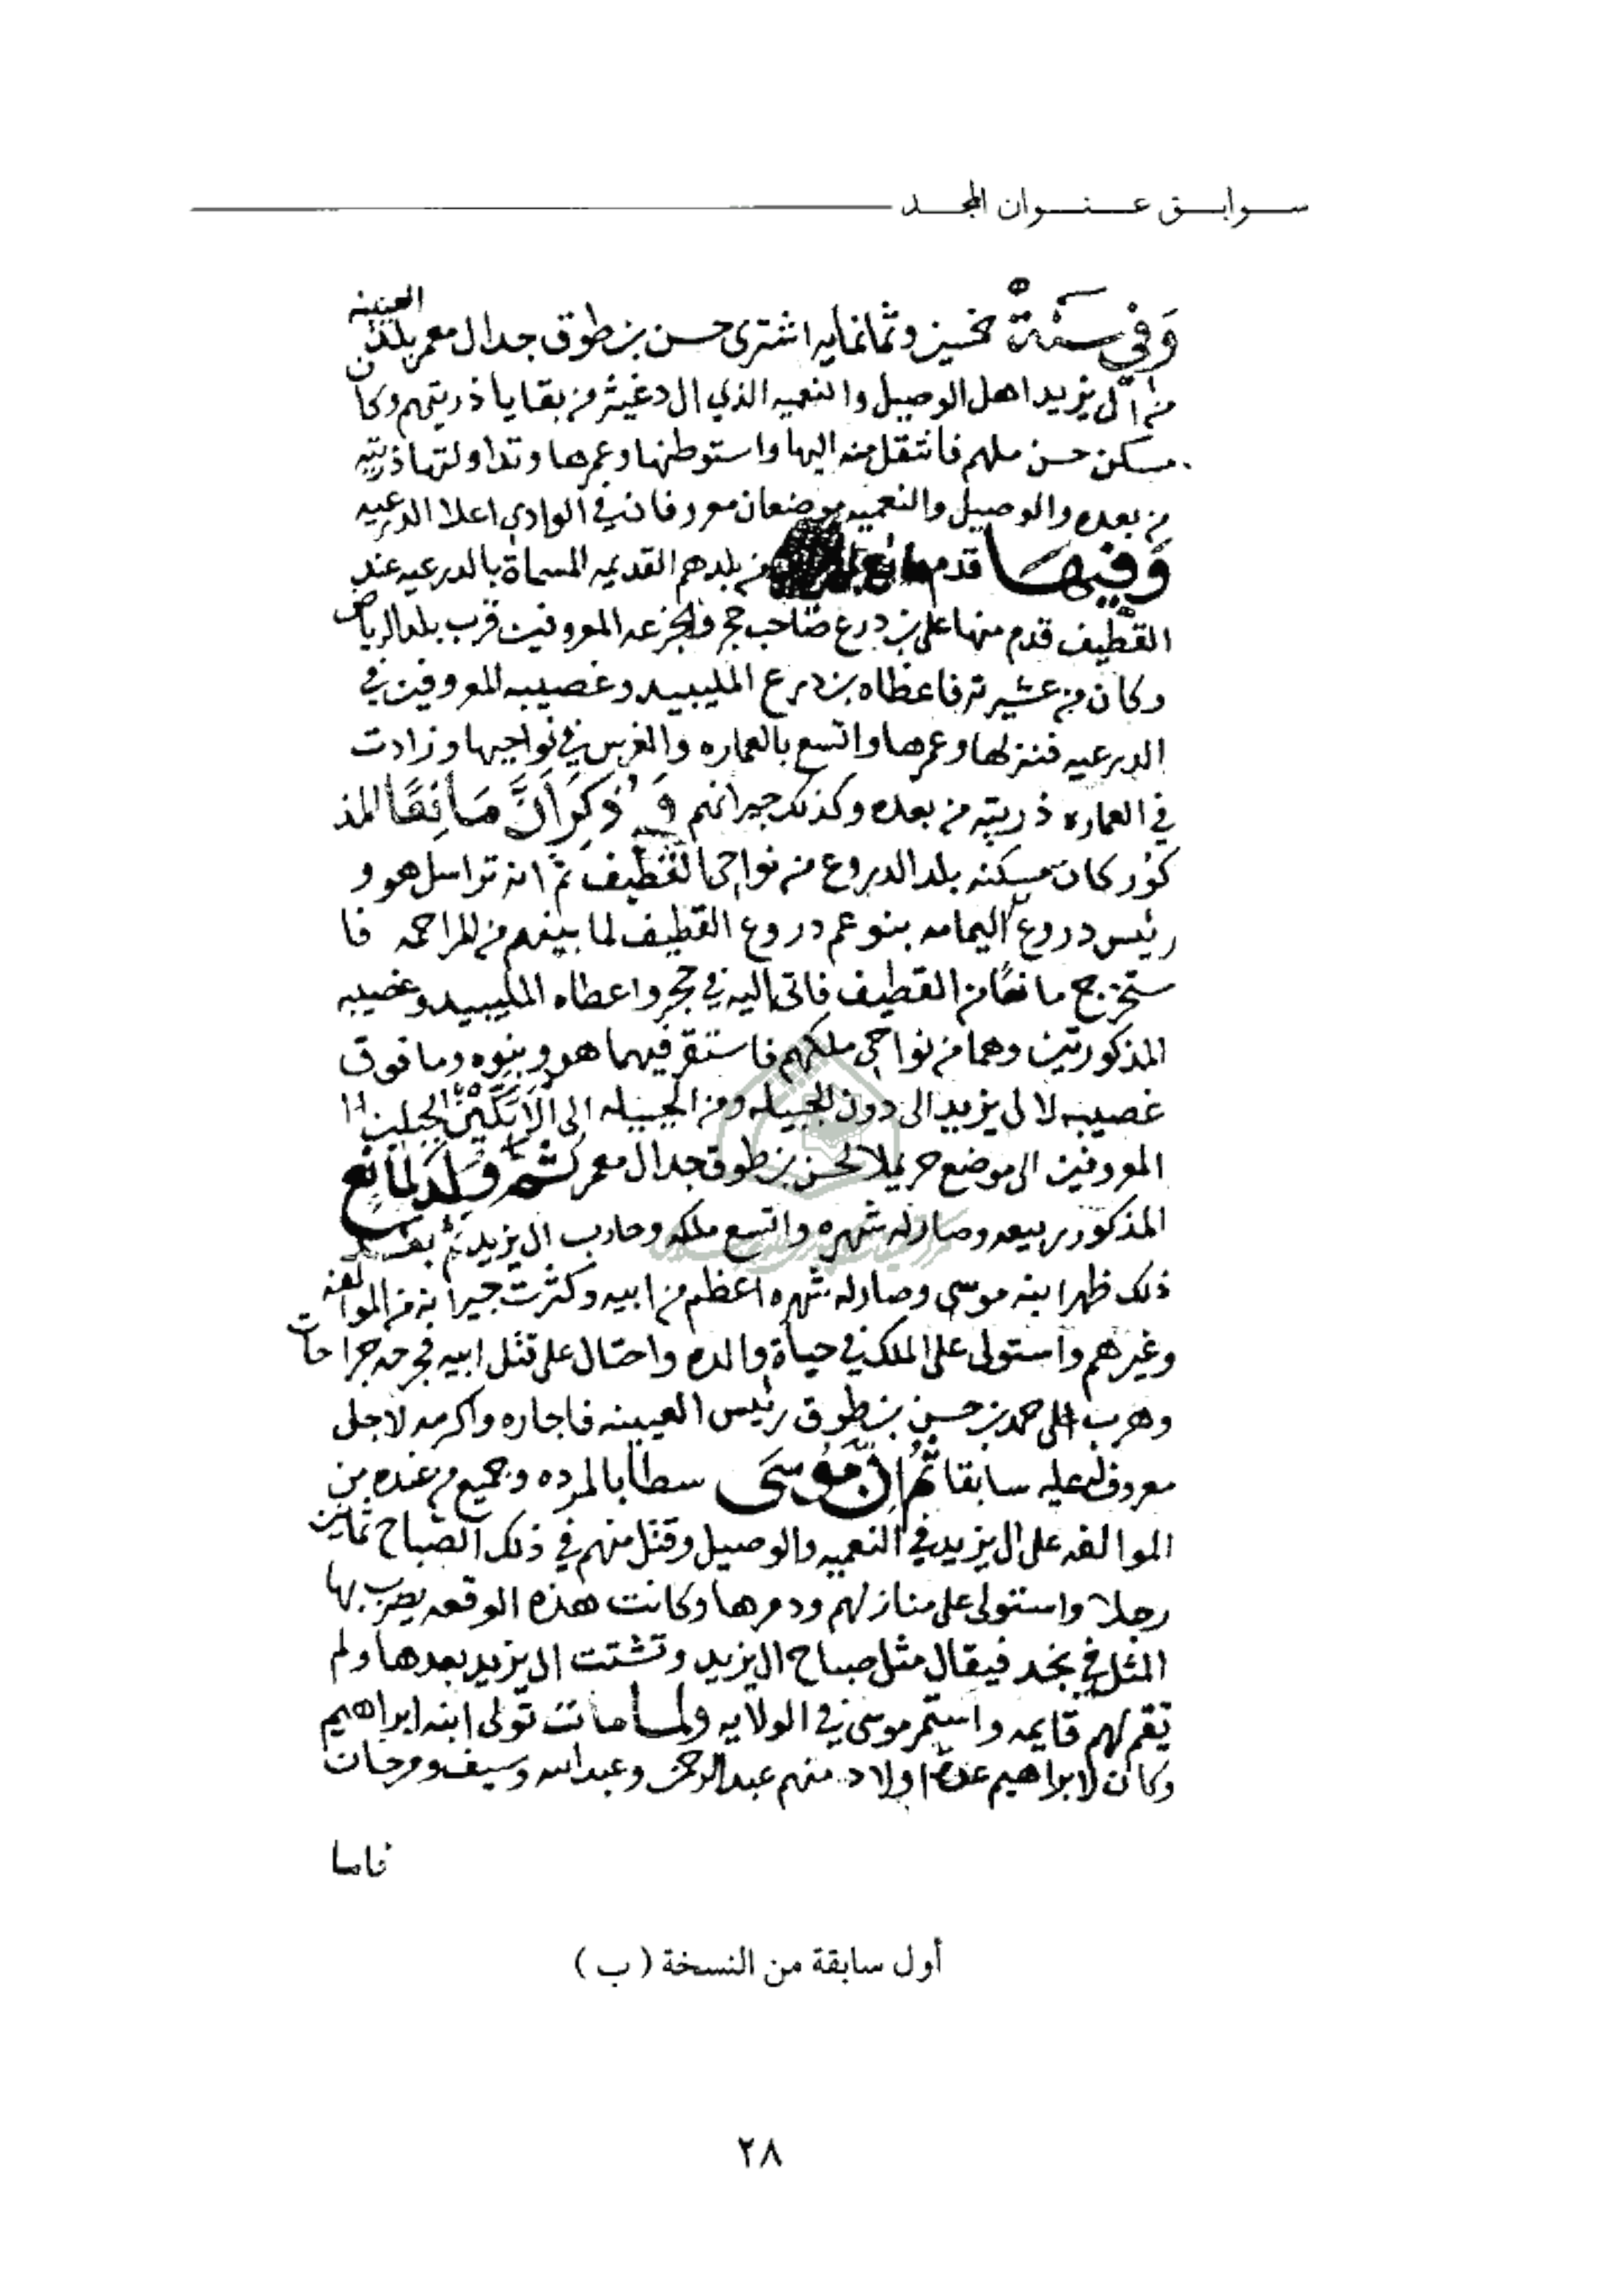 سوابق عنوان المجد
وَفي سَنَة خمسين وثمانمايه اشترى حسن بن طوق جد ال معمر بلد العيينه
من آل يزيد اهل الوصيل والنعميه الذي ال دغيثر من بقايا ذريتهم وكان
مسكن حسن ملهم فانتقل منه اليها واستوطنها وعمرها وتداولتها ذريته
من بعده والوصيل والنعميه موضعان معروفان في الوادي اعلا الدرعيه
وَفيهَا قدم مانع من بلدهم القديمه المسماة بالدرعيه عند
القطيف قدم منها على بن درع صاحب حجر والجزعه المعروفين قرب بلد الرياض
وكان من عشيرته فاعطاه بن درع المليبيد وغصيبه المعروفين في
الدرعيه فنزلها وعمرها واتسع بالعماره والغرس في نواحيها وزادت
في العماره ذريته من بعده وكذلك جيرانهم وَ ذُكِرَ اَنَّ مَانِعًا المذ
كور كان مسكنه بلد الدروع من نواحي القطيف ثم انه تراسل هو و
رئيس دروع اليمامه بنو عم دروع القطيف لما بينهم من المراحمه فا
ستخرج مانعًا من القطيف فاتى اليه في حجر واعطاه المليبيد وغصيبه
المذكورتين وهما من نواحي ملكهم فاستقر فيهما هو وبنوه وما فوق
غصيبه لال يزيد الى دون الجبيله ومن الجبيله الى الابكين الجبلين
المعروفين الى موضع حريملا لحسن بن طوق جد ال معمر ثم وُلِدَ لمانع
المذكور ربيعه وصار له شهره واتسع ملكه وحارب ال يزيد ثم بعد
ذلك ظهر ابنه موسى وصار له شهره اعظم من ابيه وكثرت جيرانه من الموالفه
وغيرهم واستولى على الملك في حياة والده واحتال على قتل ابيه فجرحه جراحات
وهرب الى حمد بن حسن بن طوق رئيس العيينه فاجاره واكرمه لاجلى
معروف له عليه سابقا ثم اِنَّ مُوسَى سطا بالمرده وجميع من عنده من
الموالفه على ال يزيد في النعميه والوصيل وقتل منهم في ذلك الصباح ثمانين
رجلا واستولى على منازلهم ودمرها وكانت هذه الوقعه يضرب بها
المثل في نجد فيقال مثل صباح ال يزيد وتشتت ال يزيد بعدها ولم
تقم لهم قايمه واستمر موسى في الولايه ولما مات تولى ابنه ابراهيم
وكان لابراهيم عدة اولاد منهم عبدالرحمن وعبدالله وسيف ومرخان
فاما
أول سابقة من النسخة ( ب )
٢٨